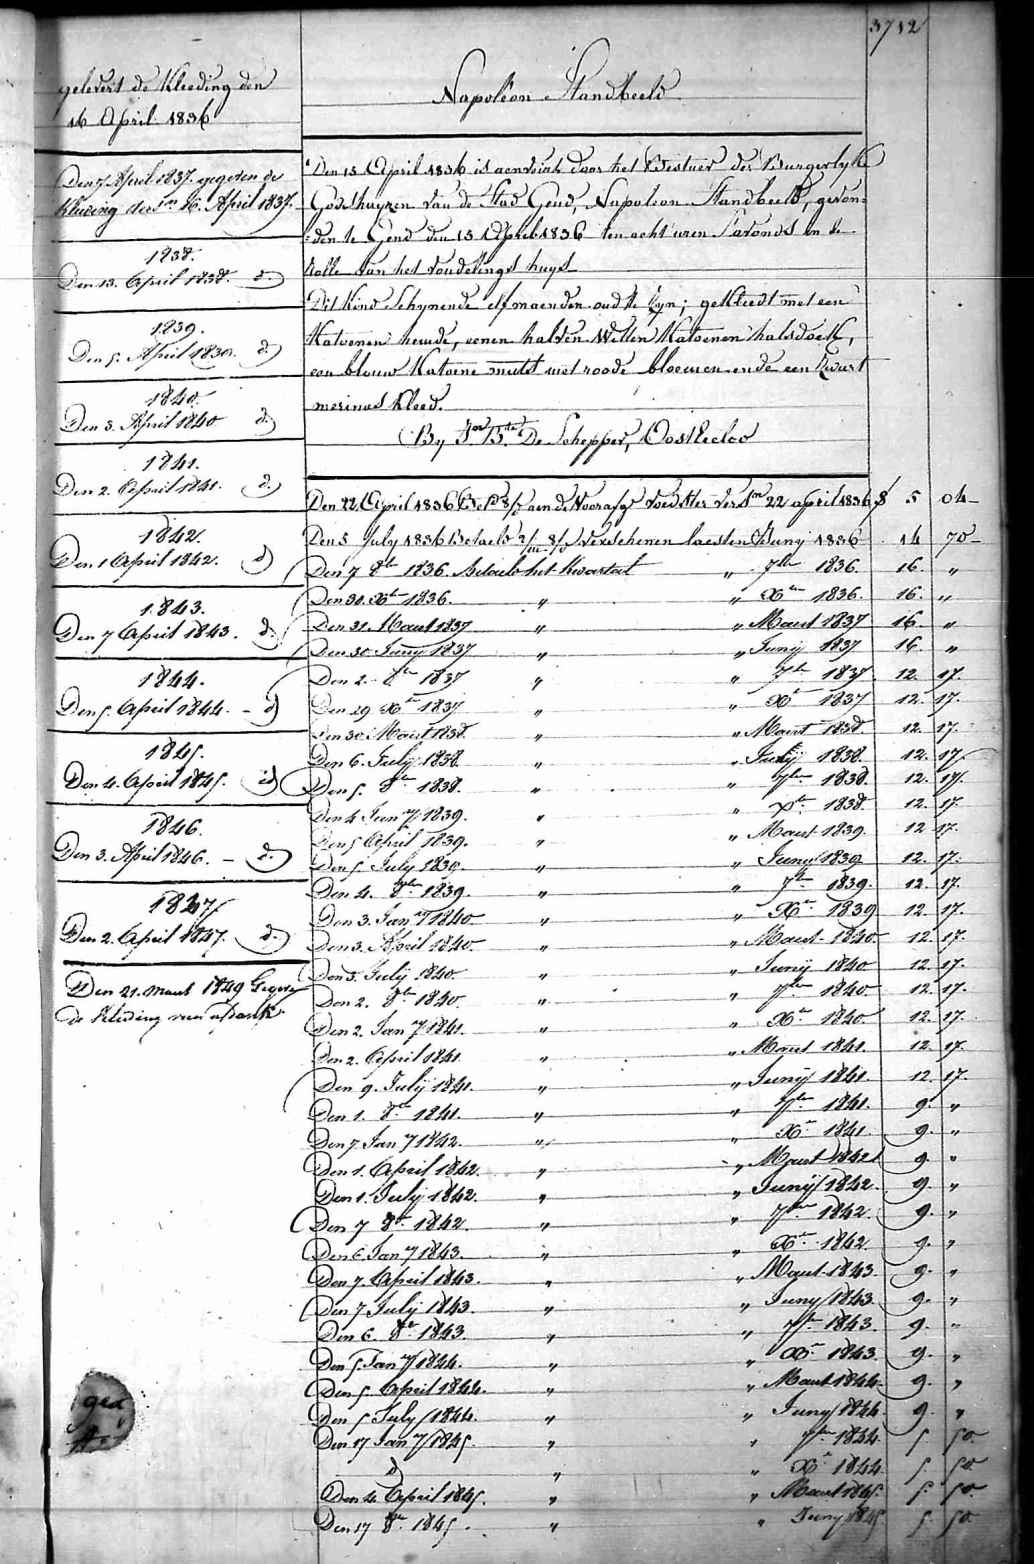 3712
gelevert de Kleeding den
16 April 1836
Den 7 April 1837. gegeven de
Kleeding der 16. April 1837.
1838.
Den 13. April 1838. d°
1839.
Den 5. April 1839. d°
1840.
Den 3. April 1840 d°
1841.
Den 2. April 1841. d°
1842.
Den 1 April 1842. d°
1843.
Den 7 April 1843. d°
1844.
Den 5. April 1844. - d°
1845.
Den 4. April 1845. id
1846.
Den 3. April 1846. - d°
1847
Den 2. April 1847. d°
Den 21. maert 1849
de Kleding
Napoleon Standbeeld
Den 15 April 1836 is aenveird door het Bestuer der Burgerlyke
Godshuyzen van de Stad Gend, Napoleon Standbeeld, gevon=
=den te Gend den 13 April 1836 ten acht uren s'avonds in de
rolle van het vondelings huys
Dit Kind schynende elf maenden oud te zyn; gekleedt met een
Katoenen hemde, eenen halven Witten Katoenen halsdoek,
een blauw Katoene muts met roode bloemen ende een Zwart
merinos Kleed.
By De Schepper, Oosteecloo
Den 22 April 1836 aen de voedster 22 april 1836 5 04
Den 5 July 1836 Betaelt verschenen laesten Juny 1836 14 70
Den 7 8br 1836. Betaelt het Kwartael " 7bre 1836. 16. "
Den 30. Xbr 1836. " " Xbre 1836. 16. "
Den 31. Maert 1837 " " Maert 1837 16. "
Den 30 Juny 1837 " " Juny 1837 16. "
Den 2. 8bre 1837 " " 7bre 1837 12. 17.
Den 29 Xbr 1837 " " Xbr 1837 12. 17.
Den 30 Maert 1838. " " Maert 1838 12. 17.
Den 6. July 1838. " " Juny 1838. 12. 17.
Den 5. 8bre 1838. " " 7bre 1838. 12. 17.
Den 4 Jany 1839. " " Xbre 1838 12. 17.
Den 5 April 1839. " " Maert 1839 12 17.
Den 5 July 1839. " " Juny 1839 12. 17.
Den 4. 8bre 1839 " " 7bre 1839. 12. 17.
Den 3. Jany 1840 " " Xbre 1839 12. 17.
Den 3. April 1840 " " Maert 1840 12. 17.
Den 3. July 1840 " " Juny 1840 12. 17.
Den 2. 8bre 1840. " " 7bre 1840 12. 17.
Den 2. Jany 1841. " " Xbre 1840 12. 17.
Den 2. April 1841 " " Maert 1841. 12. 17.
Den 9. July 1841. " " Juny 1841 12. 17.
Den 1. 8bre 1841. " " 7bre 1841. 9. "
Den 7. Jany 1842. " " Xbre 1841. 9. "
Den 1. April 1842. " " Maert 1842 9. "
Den 1. July 1842. " " Juny 1842. 9. "
Den 7 8br 1842. " " 7bre 1842. 9. "
Den 6. Jany 1843. " " Xbre 1842. 9. "
Den 7. April 1843. " " Maert 1843. 9. "
Den 7 July 1843. " " Juny 1843. 9. "
Den 6. 8br 1843. " " 7bre 1843. 9. "
Den 5. Jany 1844. " " Xbre 1843. 9. "
Den 5. April 1844. " " Maert 1844. 9. "
Den 5 July 1844. " " Juny 1844 9. "
Den 17 Jany 1845. " " 7bre 1844. 5. 50.
d° " " Xbre 1844 5. 50
Den 4. April 1845. " " Maert 1845. 5. 50.
Den 17 8bre 1845. " " Juny 1845 5. 50.